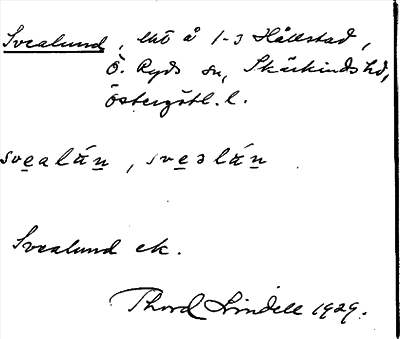 Svealund, lht å 1-3 Hållstad,
Ö. Ryds sn, Skärkinds hd,
Östergötl. l.
svealán, sveslán
Svealund ek.
Thord Lindell 1929.